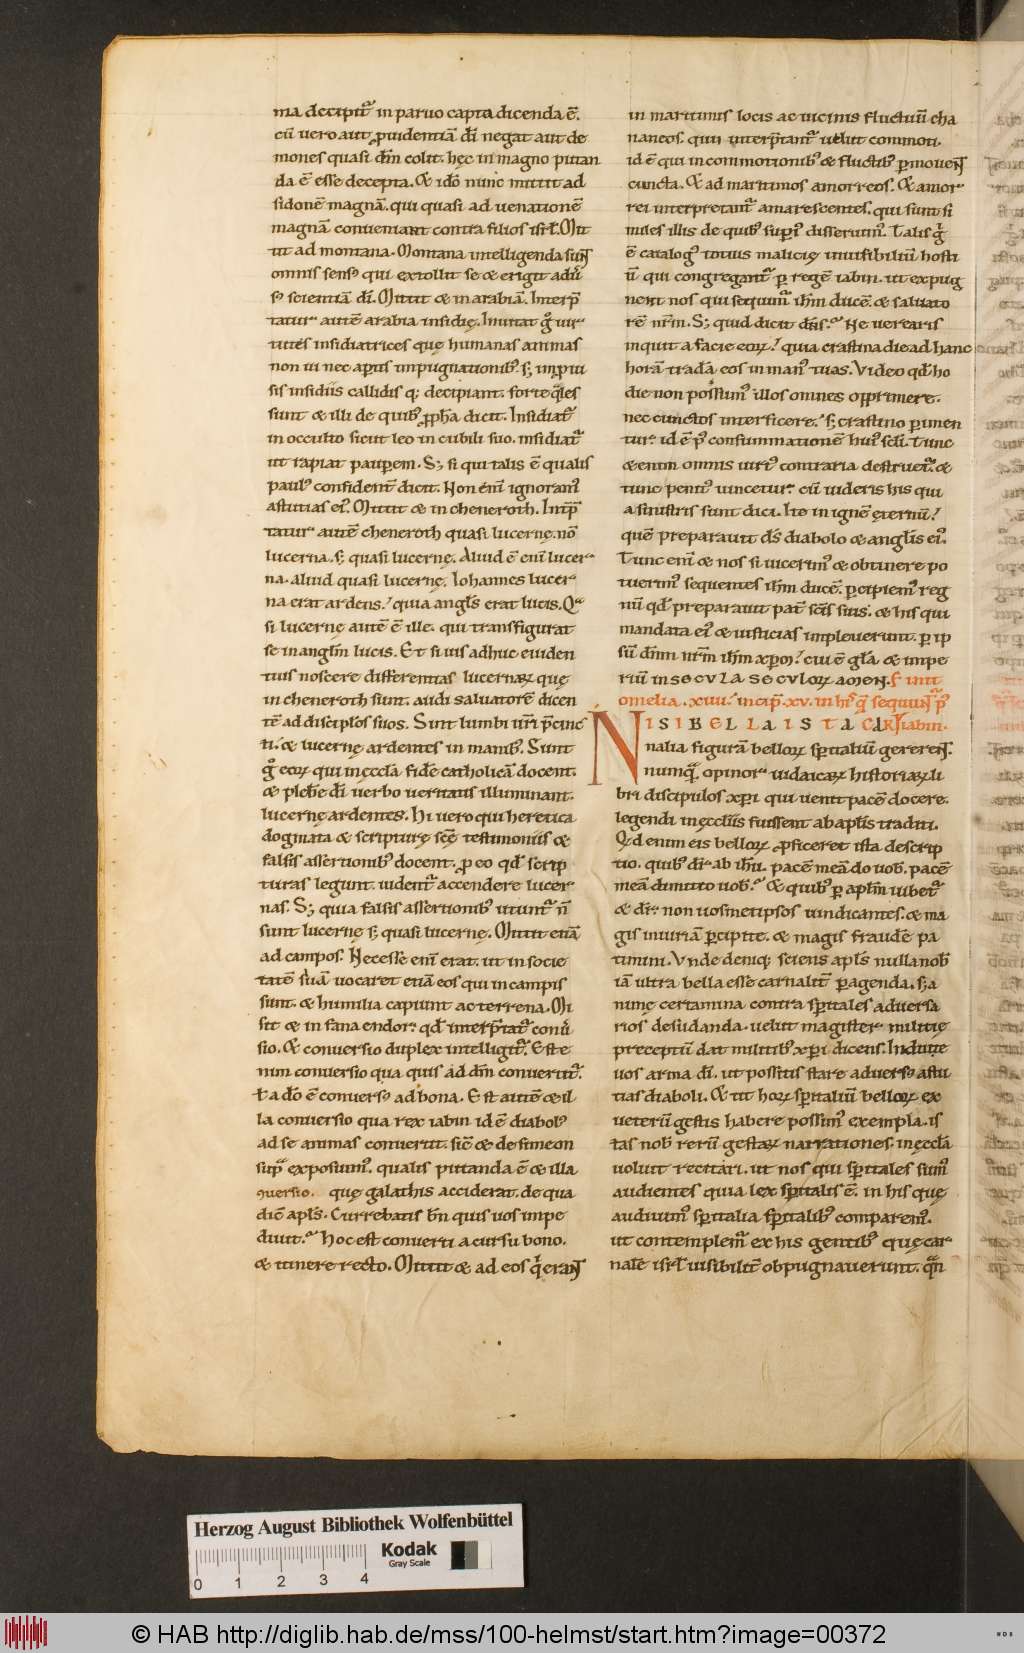 ma decipit᷑ in paruo capta dicenda ē.
cū uero aut ꝓuidentiā dī negat aut de
mones quasi dm̄ colit. hęc in magno putan
da ē esse decepta. & idō nunc mittit ad
sidonē magnā. qui quasi ad uenationē
magnā conueniant contra filios isrl̄. Mit
tit ad montana. Montana intelligenda suNt
omnis sensꝰ qui extollit se & erigit adū
sꝰ scientiā dī. Mittit & in arabiā. Interp̄
tatur autē arabia insidię. Inuitat g̊ uir
tutes insidiatrices quę humanas animas
non ui nec aꝑtis impugnationibꝰ s; imp̄ui
sis insidiis callidis q; decipiant. forte q̄les
sunt & illi de quibꝰ ꝓph̄a dicit. Insidiat᷑
in occulto sicut leo in cubili suo. insidiat᷑
ut rapiat pauꝑem. S; si qui talis ē qualis
paulꝰ confident̄ dicit. Non eni̅ ignoramꝰ
astutias eiꝰ. Mittit & in cheneroth. Int̄p̄
tatur autē cheneroth quasi lucernę. nō
lucerna. s; quasi lucernę. Aliud ē eni̅ lucer
na. aliud quasi lucernę. Iohannes lucer
na erat ardens. quia angl̄s erat lucis. Qͣ
si lucernę autē ē ille. qui transfigurat
se in angl̄m lucis. Et si uis adhuc euiden
tius noscere differentias lucernaꝝ quę
in cheneroth sunt. audi saluatorē dicen
tē ad discipl̄os suos. Sint lumbi ur̄i p̄cinc
ti. & lucernę ardentes in manibꝰ. Sunt
g̊ eoꝝ qui in ęccl̄a fidē catholicā docent.
& pleb̄e dī uerbo ueritatis illuminant.
lucernę ardentes. Hi uero qui heretica
dogmata & scripturę scę̄ testimoniis &
falsis assertionibꝰ docent. ꝓ eo qd̄ scrip
turas legunt. uident᷑ accendere lucer
nas. S; quia falsis assertionibꝰ utunt᷑ n̄
sunt lucernę s; quasi lucernę. Mittit etiā
ad campos. Necesse eni̅ erat. ut in socie
tatē suā uocaret etiā eos qui in campis
sunt. & humilia capiunt ac terrena. Mi
sit & in fana endor. qd̄ interp̄tat᷑ conū
sio. & conuersio duplex intelligit᷑. Est e
nim conuersio qua quis ad dm̄ conuertit᷑.
ł a dō ē conuersꝰ ad bona. Est autē & il
la conuersio qua rex iabin id ē diabolꝰ
ad se animas conuertit. sic̄ & de simeon
supͣ exposuimꝰ. qualis putanda ē & illa
ꝯuersio. quę galathis acciderat. de qua
dic̄ apl̄s. Currebatis bn̄ quis uos impe
diuit. Hoc est conuerti a cursu bono.
& itinere recto. Mittit & ad eos qͥ eraNt
in maritimis locis ac uicinis fluctuū cha
naneos. qui interp̄tant᷑ uelut commoti.
id ē qui in commotionibꝰ & fluctibꝰ ꝑmoueNt
cuncta. & ad maritimos amorreos. & amor
rei interpretant᷑ amarescentes. qui sunt si
miles illis de quibꝰ supͥꝰ disseruimꝰ. Talis g̊
ē catalogꝰ totius malicię inuisibiliū hosti
ū qui congregant᷑ ꝑ regē iabin. ut expug
nent nos qui sequimur ihm̄ ducē. & saluato
rē nr̄m. S; quid dicit dn̄s. Ne uerearis
inquit a facie eoꝝ. quia crastina die ad hanc
horā tradā eos in manꝰ tuas. Video qd̄ ho
die non possumꝰ illos omnes opprimere.
nec cunctos interficere. s; crastino ꝑimen
tur. id ē p̊ consummationē huiꝰ scl̄i. Tunc
&enim omnis uirtꝰ contraria destruet᷑. &
tunc penitꝰ uincetur. cū uideris his qui
a sinistris sunt dici. Ite in ignē ęternū.
quē preparauit dn̄s diabolo & angl̄is eiꝰ.
Tunc eni̅ & nos si uicerimꝰ & obtinere po
tuerimꝰ sequentes ihm̄ ducē. ꝑcipiemꝰ reg
nū qd̄ preparauit pat̄ scīs suis. & his qui
mandata eiꝰ & iusticias impleuerunt. ꝑ ip
sū dnm̄ nr̄m ihm̄ xp̄m. cui ē gl̄a & impe
riū in secula seculoꝝ amen. Finit
omelia. xiiii. incip̄. xv. in hiꝰ q̄ sequunt᷑ p̊
NISI BELLA ISTA CAR iabin.
nalia figurā belloꝝ sp̄italiū gererent.
nunquā opinor iudaicaꝝ historiaꝝ li
bri discipulos xp̄i qui uenit pacē docere.
legendi in ęccl̄iis fuissent ab apl̄is traditi.
Qd̄ enim eis belloꝝ ꝓficeret ista descrip
tio. quibꝰ dr̄ ab ihū. pacē meā do uob̄. pacē
meā dimitto uob̄. & quibꝰ ꝑ apl̄m iubet᷑
& dr̄. non uosmetipsos uindicantes. & ma
gis iniuriā ꝑcipite. & magis fraudē pa
timini. Unde deniq; sciens apl̄s nulla nob̄
iā ultra bella esse carnalit̄ ꝑagenda. s; a
nimę certamina contra sp̄itales aduersa
rios desudanda. uelut magister militię
preceptū dat militibꝰ xp̄i dicens. Induite
uos arma dī. ut possitis stare aduersꝰ astu
tias diaboli. & ut hoꝝ sp̄italiū belloꝝ ex
ueterū gestis habere possimꝰ exempla. is
tas nob̄ rerū gestaꝝ narrationes. in ęccl̄a
uoluit recitari. ut nos qui sp̄itales sumꝰ
audientes quia lex sp̄italis ē. in his quę
audiuimꝰ sp̄italia sp̄italibꝰ comparemꝰ.
ut contemplem᷑ ex his gentibꝰ quę car
nalē isrl̄ uisibilit̄ obpugnauerunt. qͣn
Herzog August Bibliothek Wolfenbüttel
Kodak
Gray Scale
0 1 2 3 4
© HAB http://diglib.hab.de/mss/100-helmst/start.htm?image=00372